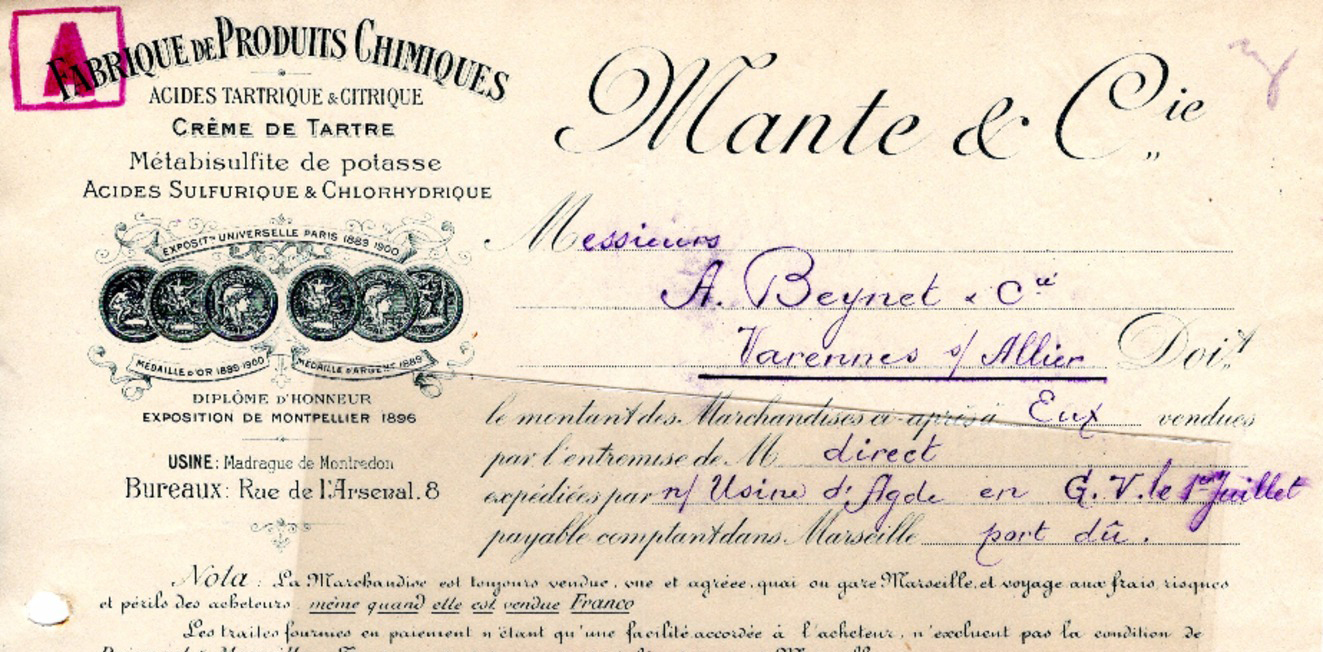 A
FABRIQUE DE PRODUITS CHIMIQUES
ACIDES TARTRIQUE & CITRIQUE
CRÊME DE TARTRE
Métabisulfite de potasse
ACIDES SULFURIQUE & CHLORHYDRIQUE
EXPOSITn UNIVERSELLE PARIS 1889 1900
MÉDAILLE D'OR 1889 1900 MÉDAILLE D'ARGENT 1889
DIPLÔME D'HONNEUR
EXPOSITION DE MONTPELLIER 1896
USINE: Madrague de Montredon
Bureaux: Rue de l'Arsenal. 8
Mante & Cie
Messieurs
A. Beynet & Cie
Varennes s/ Allier Doivt
le montant des Marchandises ci-après à Eux vendues
par l'entremise de M direct
expédiées par n/ Usine d'Agde en G. V. le 1er Juillet
payable comptant dans Marseille port dû.
Nota: La Marchandise est toujours vendue, vue et agréée, quai ou gare Marseille, et voyage aux frais, risques
et périls des acheteurs, même quand elle est vendue Franco
Les traites fournies en paiement n'étant qu'une facilité accordée à l'acheteur, n'excluent pas la condition de